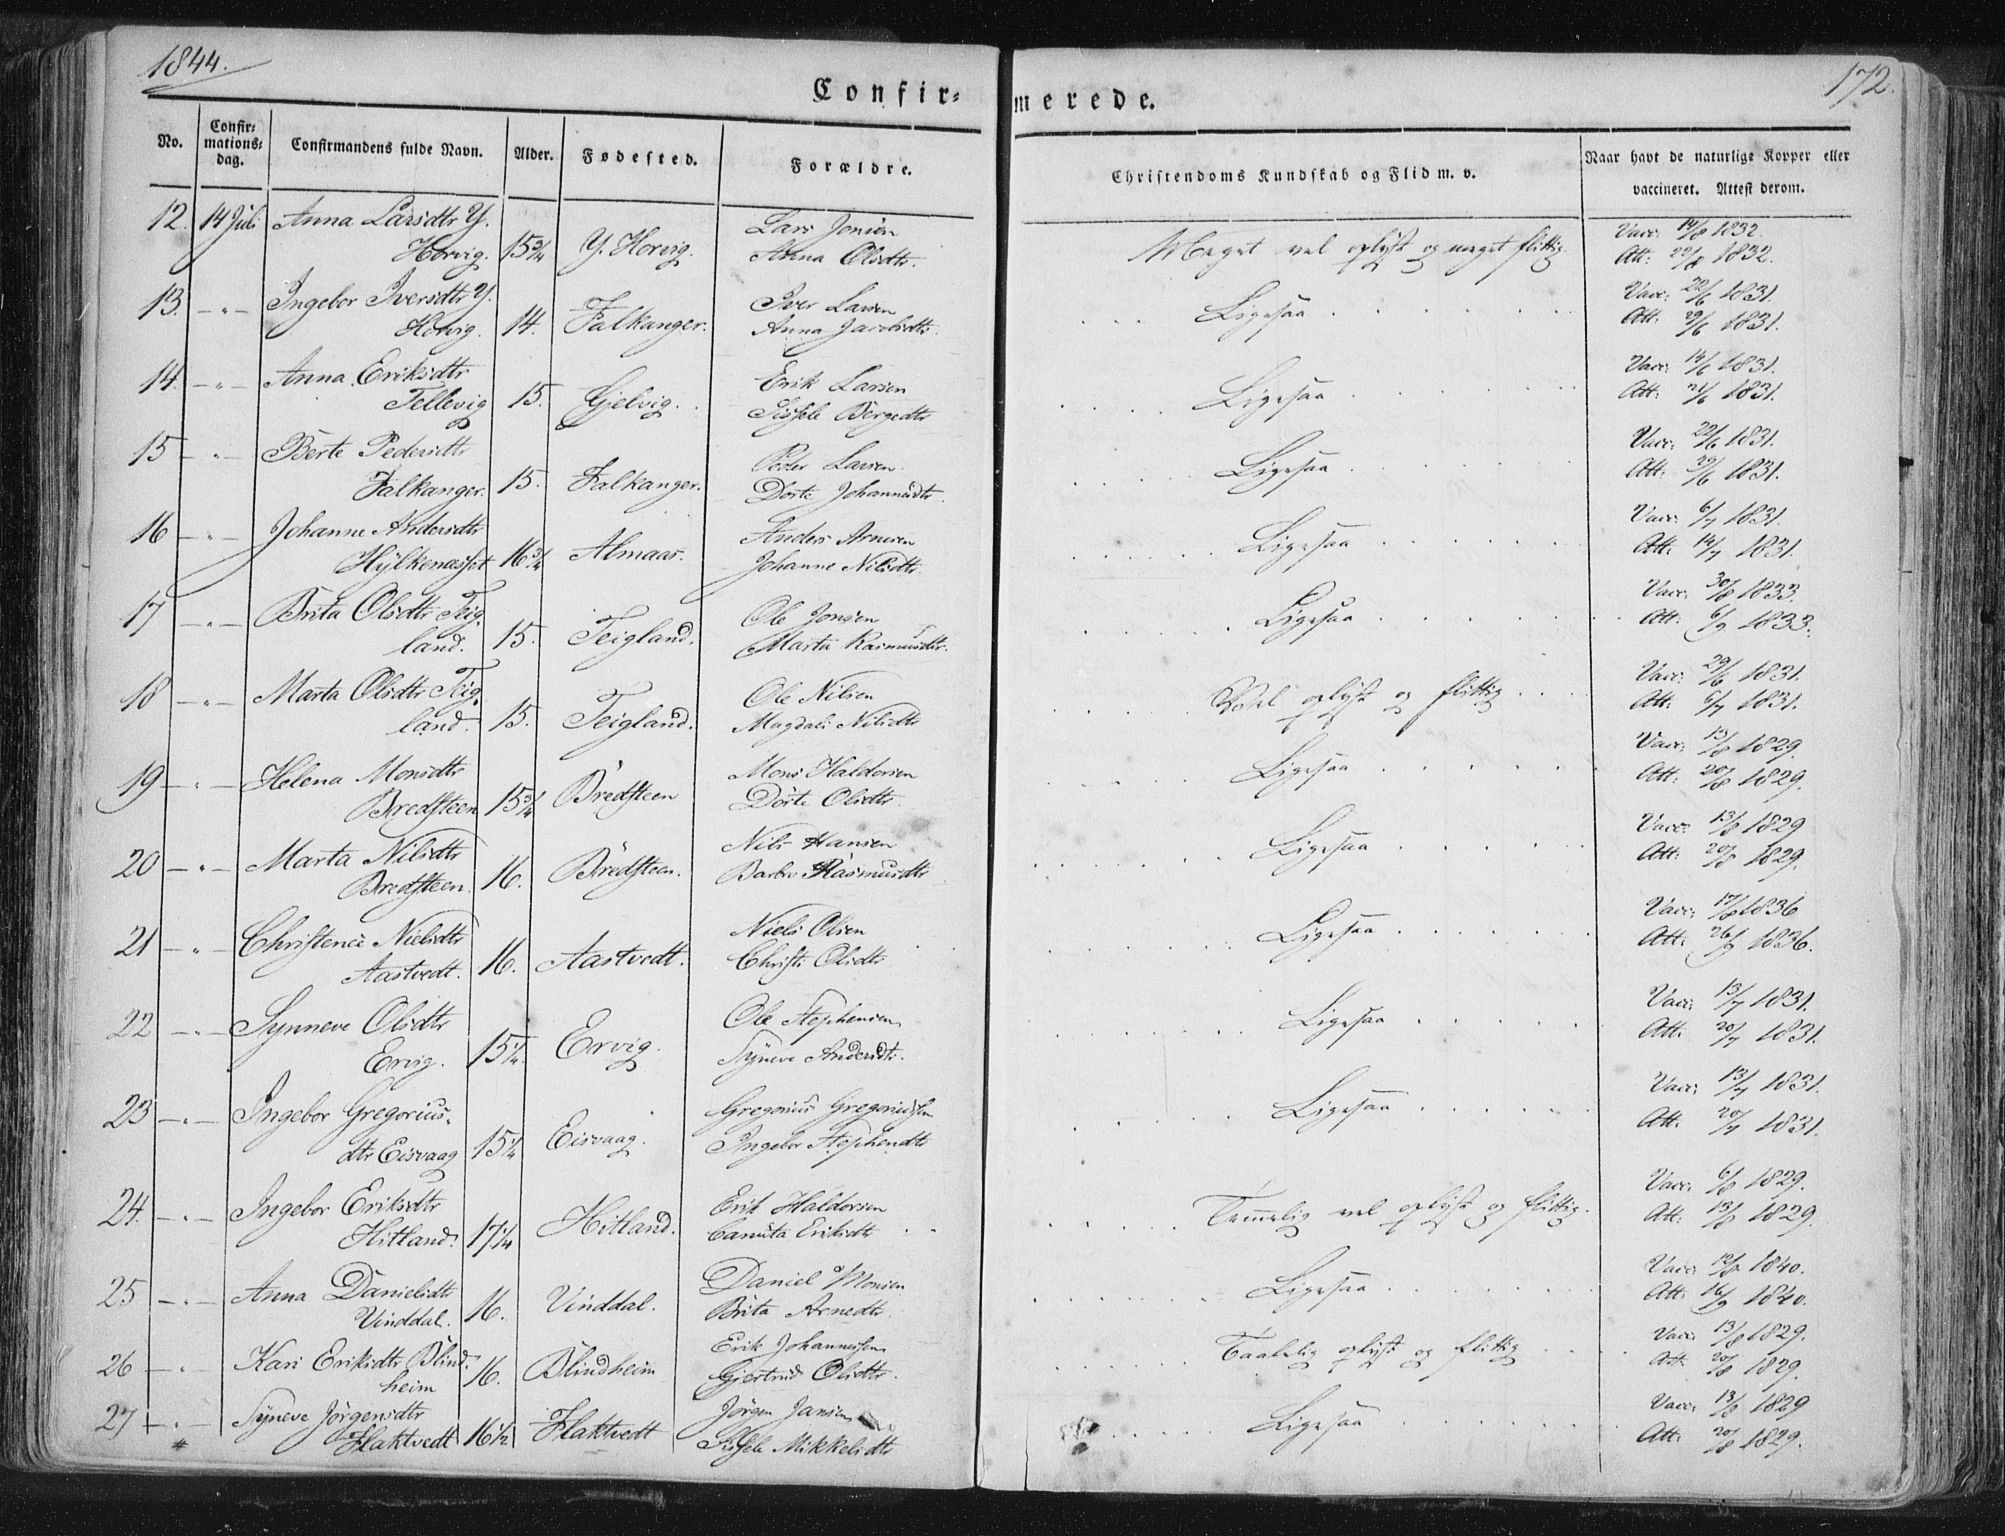 1844.
172.
Confir-
merede.
No.
Confir-
mations-
dag.
Confirmandens fulde Navn.
Alder.
Fødested.
Forældre.
Christendoms Kundskab og Flid m. v.
Naar havt de naturlige Kopper eller
vaccineret. Attest derom.
12. 14 Juli Anna Larsdtr Y. Lars Jonsen Vacc: 14/8 1832.
Horvig. 15 3/4 Y. Horvig. Anna Olsdtr. Meget vel oplyst og meget flittig. Att: 22/8 1832.
13. -"- Ingebor Iversdtr Y. Iver Larsen Vacc: 22/6 1831.
Horvig. 14. Falkanger. Anna Jacobsdtr. Ligesaa Att: 29/6 1831.
14. -"- Anna Eriksdtr Erik Larsen Vacc: 14/6 1831.
Tellevig 15. Gjelvig. Sissele Børgedtr Ligesaa Att: 21/6 1831.
15 -"- Berte Pedersdtr Peder Larsen Vacc: 22/6 1831.
Falkanger. 15. Falkanger. Dorte Johannesdtr. Ligesaa Att: 29/6 1831.
16 -"- Johanne Andersdtr Anders Arnesen Vacc: 6/7 1831.
Hylkenæsset 16 3/4 Almaas. Johanne Nilsdtr. Ligesaa Att: 14/7 1831.
17 -"- Brita Olsdtr Teig- Ole Jonsen Vacc: 30/8 1833.
land. 15. Teigland. Marta Rasmusdtr. Ligesaa Att: 6/9 1833.
18 -"- Marta Olsdtr Teig- Ole Nilsen Vacc: 29/6 1831.
land. 15. Teigland. Magdali Nilsdtr Vel oplyst og flittig Att: 6/7 1831.
19 -"- Helena Monsdtr Mons Haldorsen Vacc: 13/8 1829.
Bredsteen 15 3/4 Bredsteen Dorte Olsdtr. Ligesaa Att: 20/8 1829.
20 -"- Marta Nilsdtr Nils Hansen Vacc: 13/8 1829
Bredsteen. 16. Bredsteen. Barbro Rasmusdtr Ligesaa Att: 20/8 1829.
21 -"- Christence Nielsdtr Niels Olsen Vacc: 17/8 1836
Aastvedt. 16. Aastvedt. Christi Olsdtr Ligesaa Att: 1836.
22 -"- Synneve Olsdtr Ole Stephensen Vacc: 13/7 1831.
Ervig. 15 1/4. Ervig. Syneve Andersdtr. Ligesaa Att: 20/7 1831.
23 -"- Ingebor Gregorius- Gregorius Gregoriussen Vacc: 13/7 1831.
dtr Eisvaag 15 1/4 Eisvaag. Ingebor Stephensdtr Ligesaa Att: 20/7 1831.
24. -"- Ingebor Eriksdtr Erik Haldorsen Vacc: 6/8 1829.
Hitland. 17 1/4 Hitland. Canuta Eriksdtr Temmelig vel oplyst og flittig. Att: 13/8 1829.
25 -"- Anna Danielsdtr Daniel Monsen Vacc: 1840.
Vinddal. 16. Vinddal. Brita Arnedtr. Ligesaa Att: 1840.
26 -"- Kari Eriksdtr Blind- Erik Johannessen Vacc: 13/8 1829.
heim 16. Blindheim Gjertrud Olsdtr. Taalelig oplyst og flittig Att: 20/8 1829.
27 -"- Syneve Jørgensdtr Jørgen Jansen Vacc: 13/8 1829
Flaktvedt 16 1/2 Flaktvedt Sissele Mikkelsdtr Ligesaa Att: 20/8 1829.